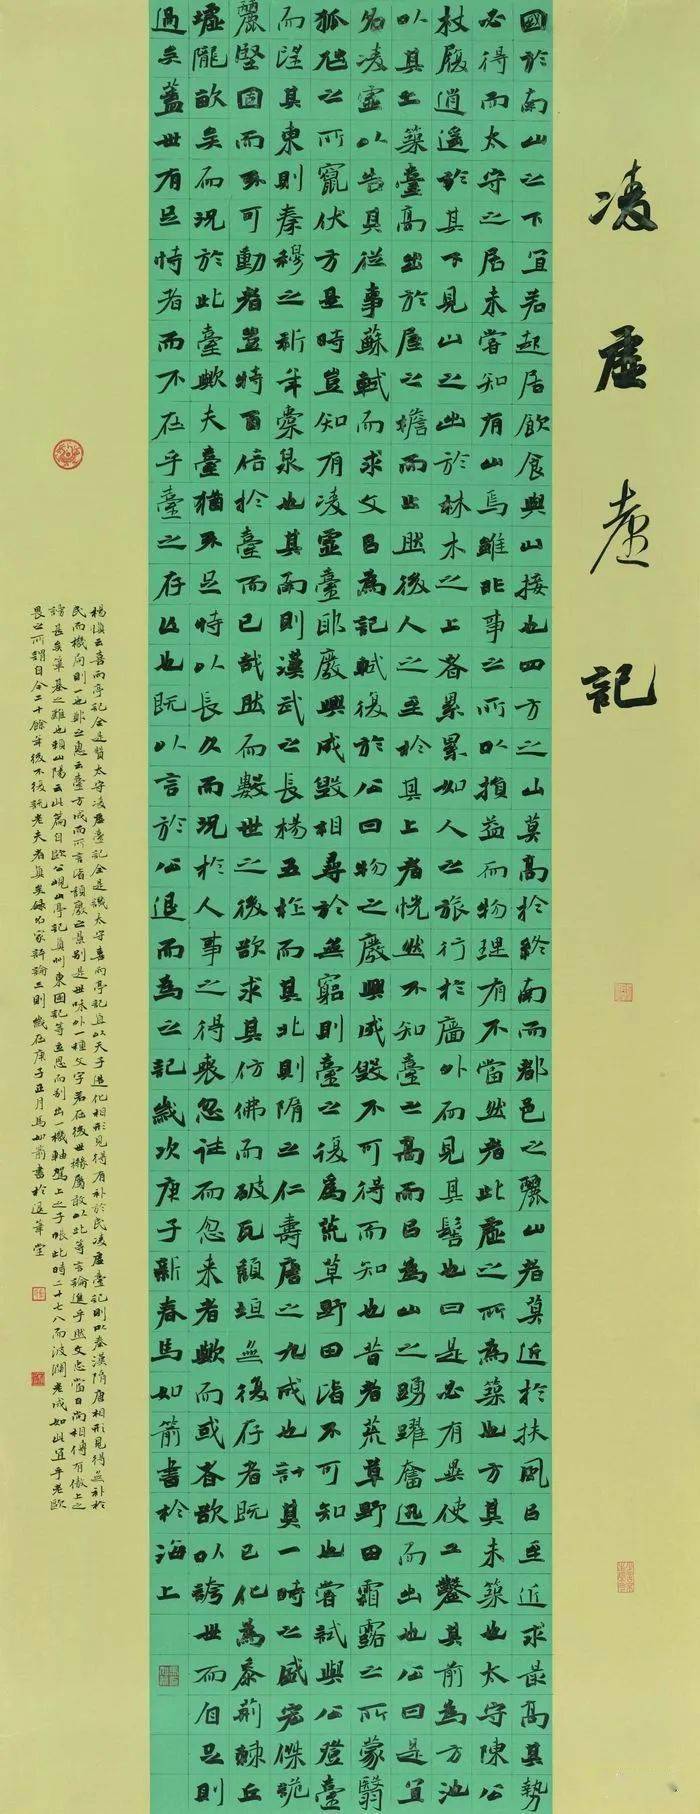 凌虛臺記
國於南山之下宜若起居飲食與山接也四方之山莫高於終南而都邑之麗山者莫近於扶風以至近求最高其勢
必得而太守之居未嘗知有山焉雖非事之所以損益而物理有不當然者此虛之所為築也方其未築也太守陳公
杖履逍遙於其下見山之出於林木之上者累累如人之旅行於廧外而見其髻也曰是必有異使工鑿其前為方池
以其土築臺高出於屋之檐而止然後人之至於其上者恍然不知臺之高而以為山之踴躍奮迅而出也公曰是宜
名凌虛以告其從事蘇軾而求文以為記軾復於公曰物之廢興成毀不可得而知也昔者荒草野田霜露之所蒙翳
狐虺之所竄伏方是時豈知有凌虛臺耶廢興成毀相尋於無窮則臺之復為荒草野田皆不可知也嘗試與公登臺
而望其東則秦穆之祈年橐泉也其南則漢武之長楊五柞而其北則隋之仁壽唐之九成也計其一時之盛宏傑詭
麗堅固而不可動者豈特百倍於臺而已哉然而數世之後欲求其仿佛而破瓦頹垣無復存者既已化為黍荊棘丘
墟隴畝矣而況於此臺歟夫臺猶不足恃以長久而況於人事之得喪忽往而忽來者歟而或者欲以誇世而自足則
過矣蓋世有足恃者而不在乎臺之存亡也既以言於公退而為之記歲次庚子新春馬如箭書於海上
楊慎云喜雨亭記全是贊太守凌虛臺記全是譏太守喜雨亭記直以天子造化相形見得有補於民凌虛臺記則以秦漢隋唐相形見得無補於
民而機局則一也鄭之惠云臺方成而所言皆頹廢之景別是世味外一種文字若在後世敢以此等言論進乎然文忠當日尚相傳有傲上之
謗甚矣筆之難也賴山陽云此篇自歐公峴山亭記真州東園記等立思而別出一機軸駕上之子瞻此時二十七八而波瀾老成如此宜乎老歐
畏之所謂自今二十餘年後不復說老夫者真矣錄名家評論三則歲在庚子正月馬如箭書於退筆堂